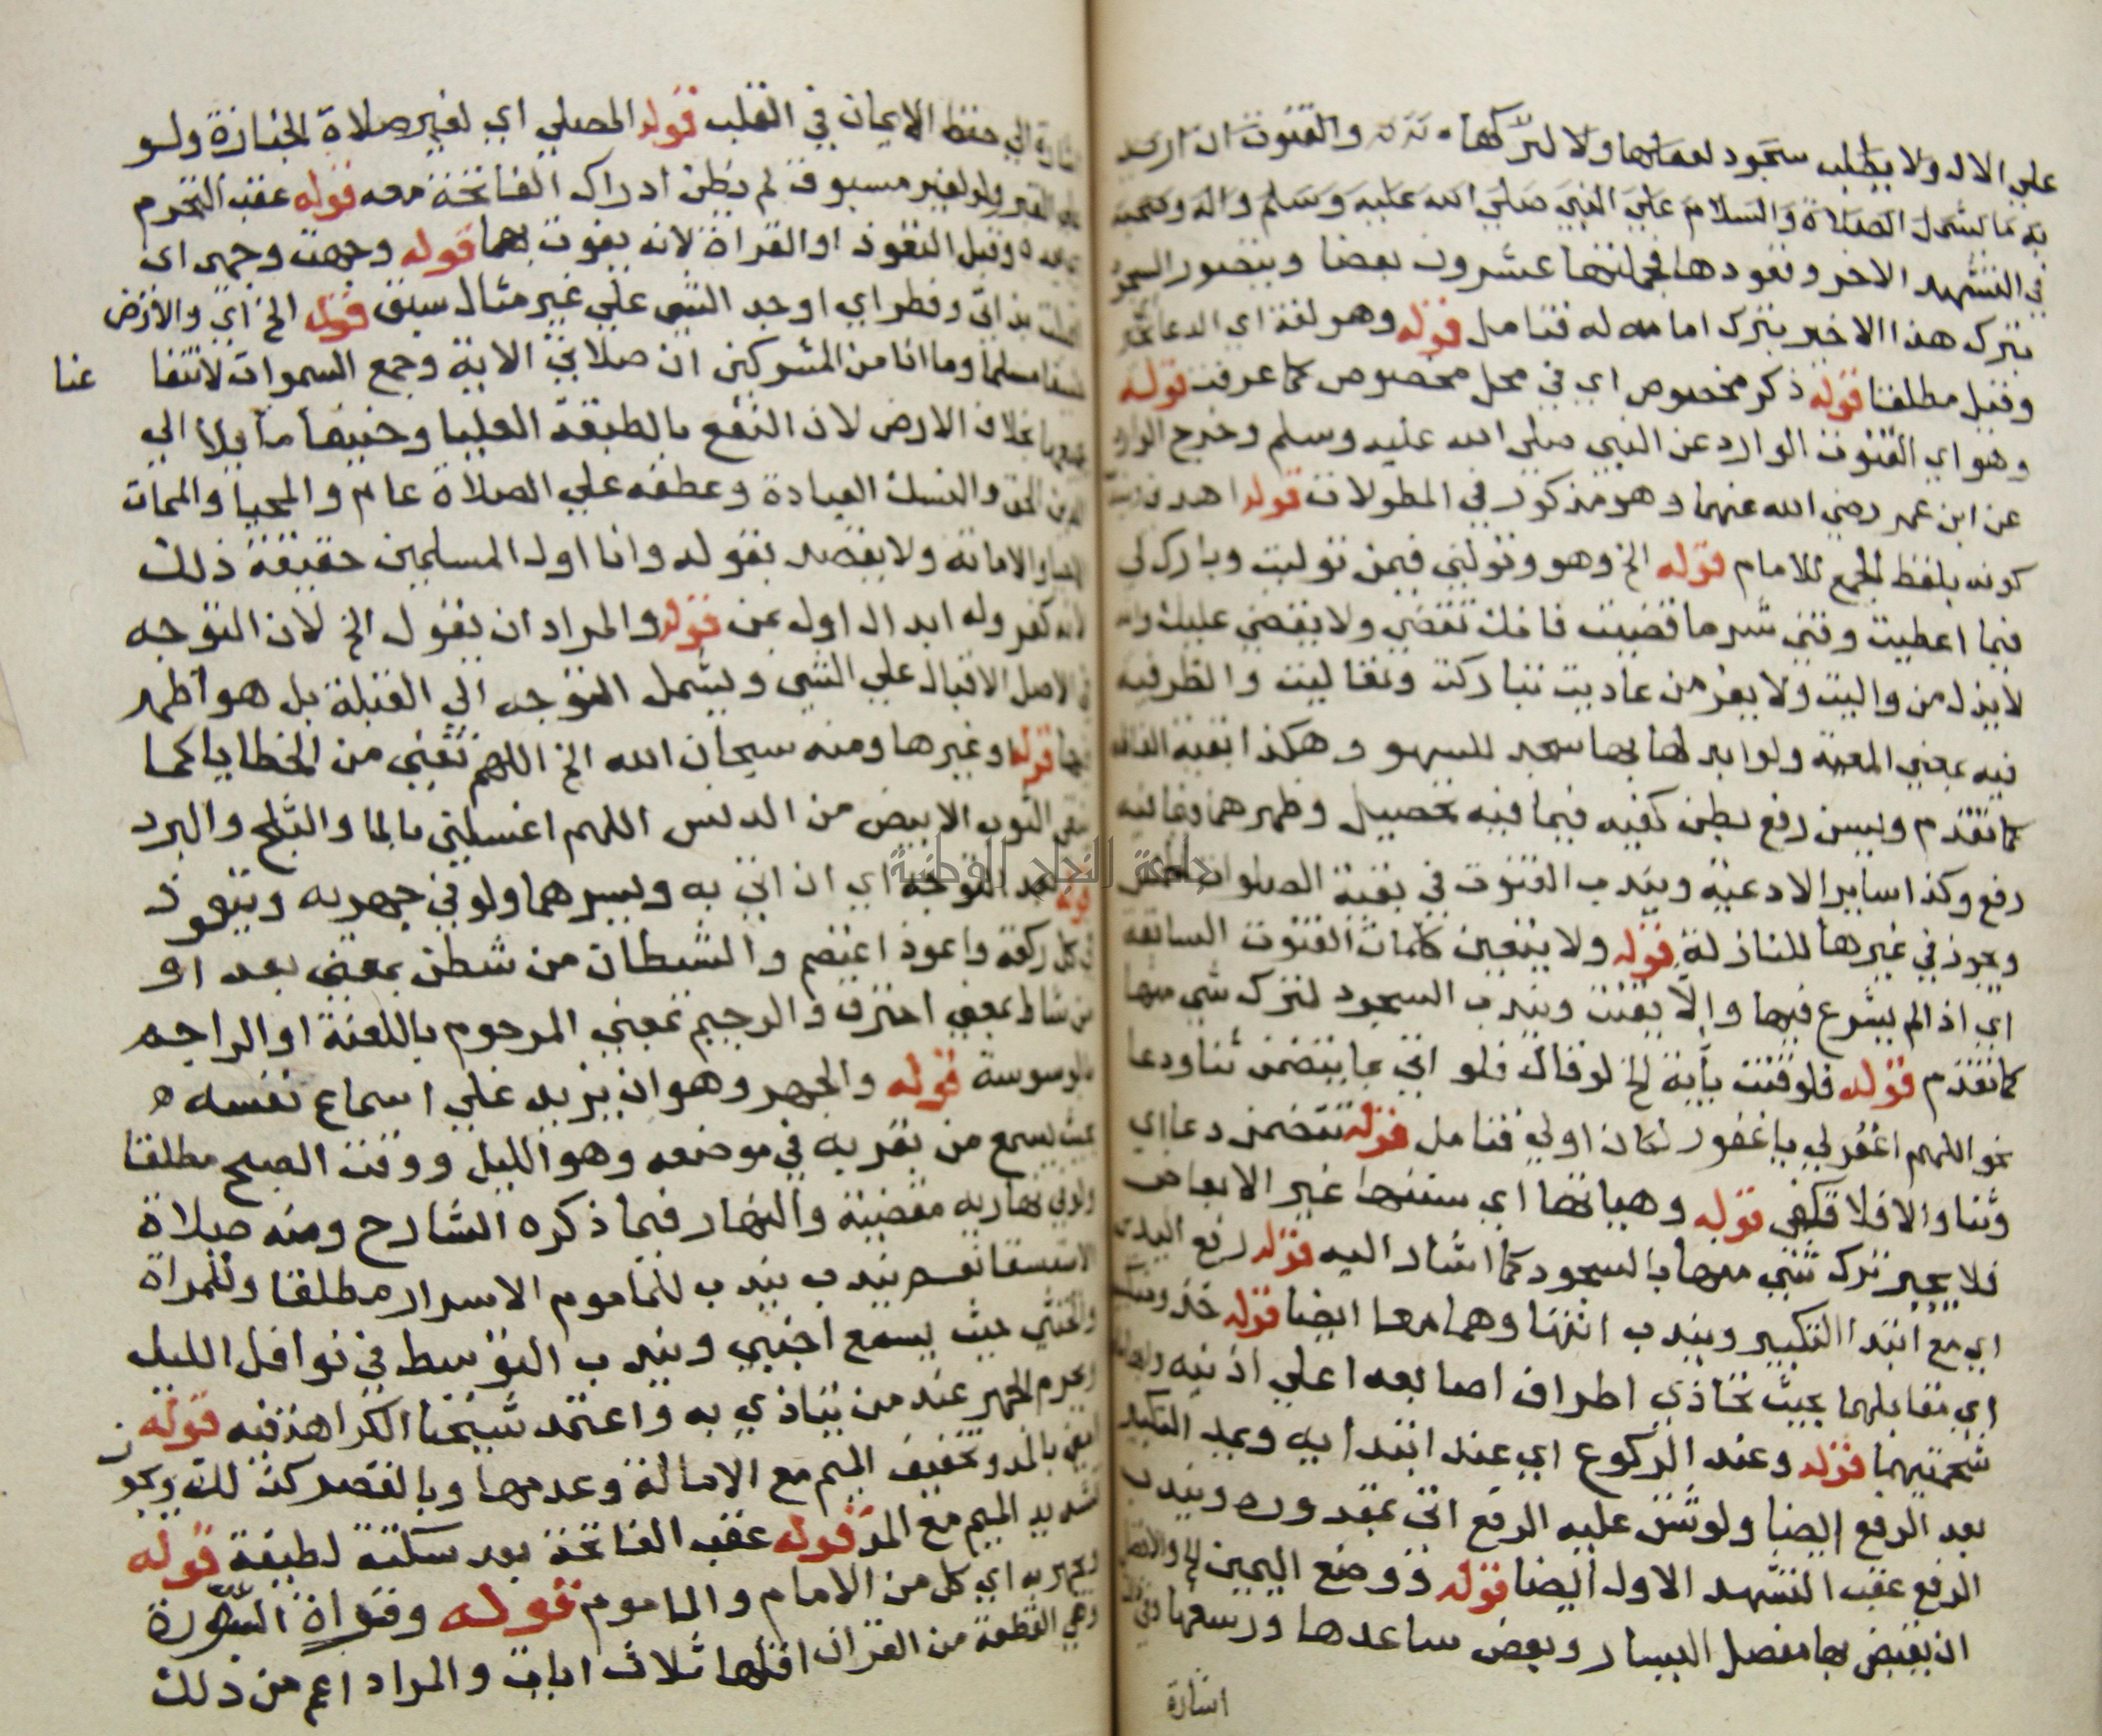 علي الال ولا يطلب سجود لفعلها ولا لتركها والقنوت ان اريد
به ما يشمل الصلاة والسلام علي النبي صلي الله عليه وسلم واله وصحبه
في التشهد الاخر وقعودها فجملتها عشرون بعضا ويتصور السجود
بترك هذا الاخير بترك امامه له فتامل قوله وهو لغة اي الدعا
وقيل مطلقا قوله ذكر مخصوص اي في محل مخصوص كما عرفت قوله
وهو اي القنوت الوارد عن النبي صلي الله عليه وسلم وخرج الوارد
عن ابن عمر رضي الله عنهما وهو مذكور في المطولات قوله اهدني
كونه بلفظ الجمع للامام قوله الخ وهو وتولني فيمن توليت وبارك لي
فيما اعطيت وقني شر ما قضيت فانك تقضي ولا يقضي عليك وانه
لا يذل من واليت ولا يعز من عاديت تباركت وتعاليت والظرفية
فيه بمعني المعية ولو ابدلها بها سجد للسهو وهكذا بقية
كما تقدم ويسن رفع بطن كفيه فيما فيه تحصيل وظهرهما فيما فيه
رفع وكذا ساير الادعية ويندب القنوت في بقية الصلوات الخمس
ويجوز في غيرها للنازلة قوله ولا يتعين كلمات القنوت السابقة
اي اذا لم يشرع فيها والا يقنت ويندب السجود لترك شي منها
كما تقدم قوله فلو قنت باية الخ لو قال فلو اتي بما يتضمن ثنا ودعا
نحو اللهم اغفر لي يا غفور لكان اولي فتامل قوله تتضمن دعا اي
وثنا والا فلا تكفي قوله وهياتها اي سننها غير الابعاض
فلا يجبر ترك شي منها بالسجود كما اشار اليه قوله رفع اليدين
اي مع ابتدا التكبير ويندب انتها وهما معا ايضا قوله حذو منكبيه
اي مقابلهما بحيث تحاذي اطراف اصابعه اعلي اذنيه وابهاماه
شحمتيهما قوله وعند الركوع اي عند ابتدا به وعند التكبير
بعد الرفع ايضا ولو شق عليه الرفع اتي بمقدوره ويندب
الرفع عقب التشهد الاول ايضا قوله ووضع اليمين الخ والافضل
ان يقبض بها مفصل اليسار وبعض ساعدها ورسغها
اشارة
اشارة الي حفظ الايمان في القلب قوله المصلي اي لغير صلاة الجنازة ولو
علي القبر ولو لغير مسبوق لم يظن ادراك الفاتحة معه قوله عقب التحرم
وقبل التعوذ او القراة لانه يفوت بهما قوله وجهت وجهي اي
اقبلت بذاتي وفطر اي اوجد الشي علي غير مثال سبق قوله الخ اي والارض
حنيفا مسلما وما انا من المشركين ان صلاتي الاية وجمع السموات لانتفا عنا
بجميعها بخلاف الارض لان النفع بالطبقة العليا وحنيفا مايلا الي
الدين الحق والنسك العبادة وعطفه علي الصلاة عام والمحيا والممات
الاحيا والاماتة ولا يقصد بقوله وانا اول المسلمين حقيقة ذلك
لانه كفر وله ابدال اول بمن قوله والمراد ان يقول الخ لان التوجه
في الاصل الاقبال علي الشي ويشمل التوجه الي القبلة بل هو اظهر
قوله او غيرها ومنه سبحان الله الخ اللهم نقني من الخطايا كما
ينقي الثوب الابيض من الدنس اللهم اغسلني بالما والثلج والبرد
قوله بعد التوجه اي ان اتي به ويسرهما ولو في جهريه ويتعوذ
في كل ركعة واعوذ اعتصم والشيطان من شطن بمعني بعد او
من شاط بمعني احترق والرجيم بمعني المرجوم باللعنة او الراجم
بالوسوسة قوله والجهر وهو ان يزيد علي اسماع نفسه
بحيث يسمع من بقربه في موضعه وهو الليل ووقت الصبح مطلقا
ولو في نهاريه مقضية والنهار فيما ذكره الشارح ومنه صلاة
الاستسقا نعم يندب يندب للماموم الاسرار مطلقا وللمراة
والخنثي حيث يسمع اجنبي ويندب التوسط في نوافل الليل
ويحرم الجهر عند من يتاذي به واعتمد شيخنا الكراهة فيه قوله
امين بالمد وتخفيف الميم مع الامالة وعدمها وبالقصر كذلك ويجوز
تشديد الميم مع المد قوله عقب الفاتحة بعد سكتة لطيفة قوله
ويجهر به اي كل من الامام والماموم قوله وقراة السورة
وهي القطعة من القران اقلها ثلاث ايات والمراد اعم من ذلك
جامعة النجاح الوطنية